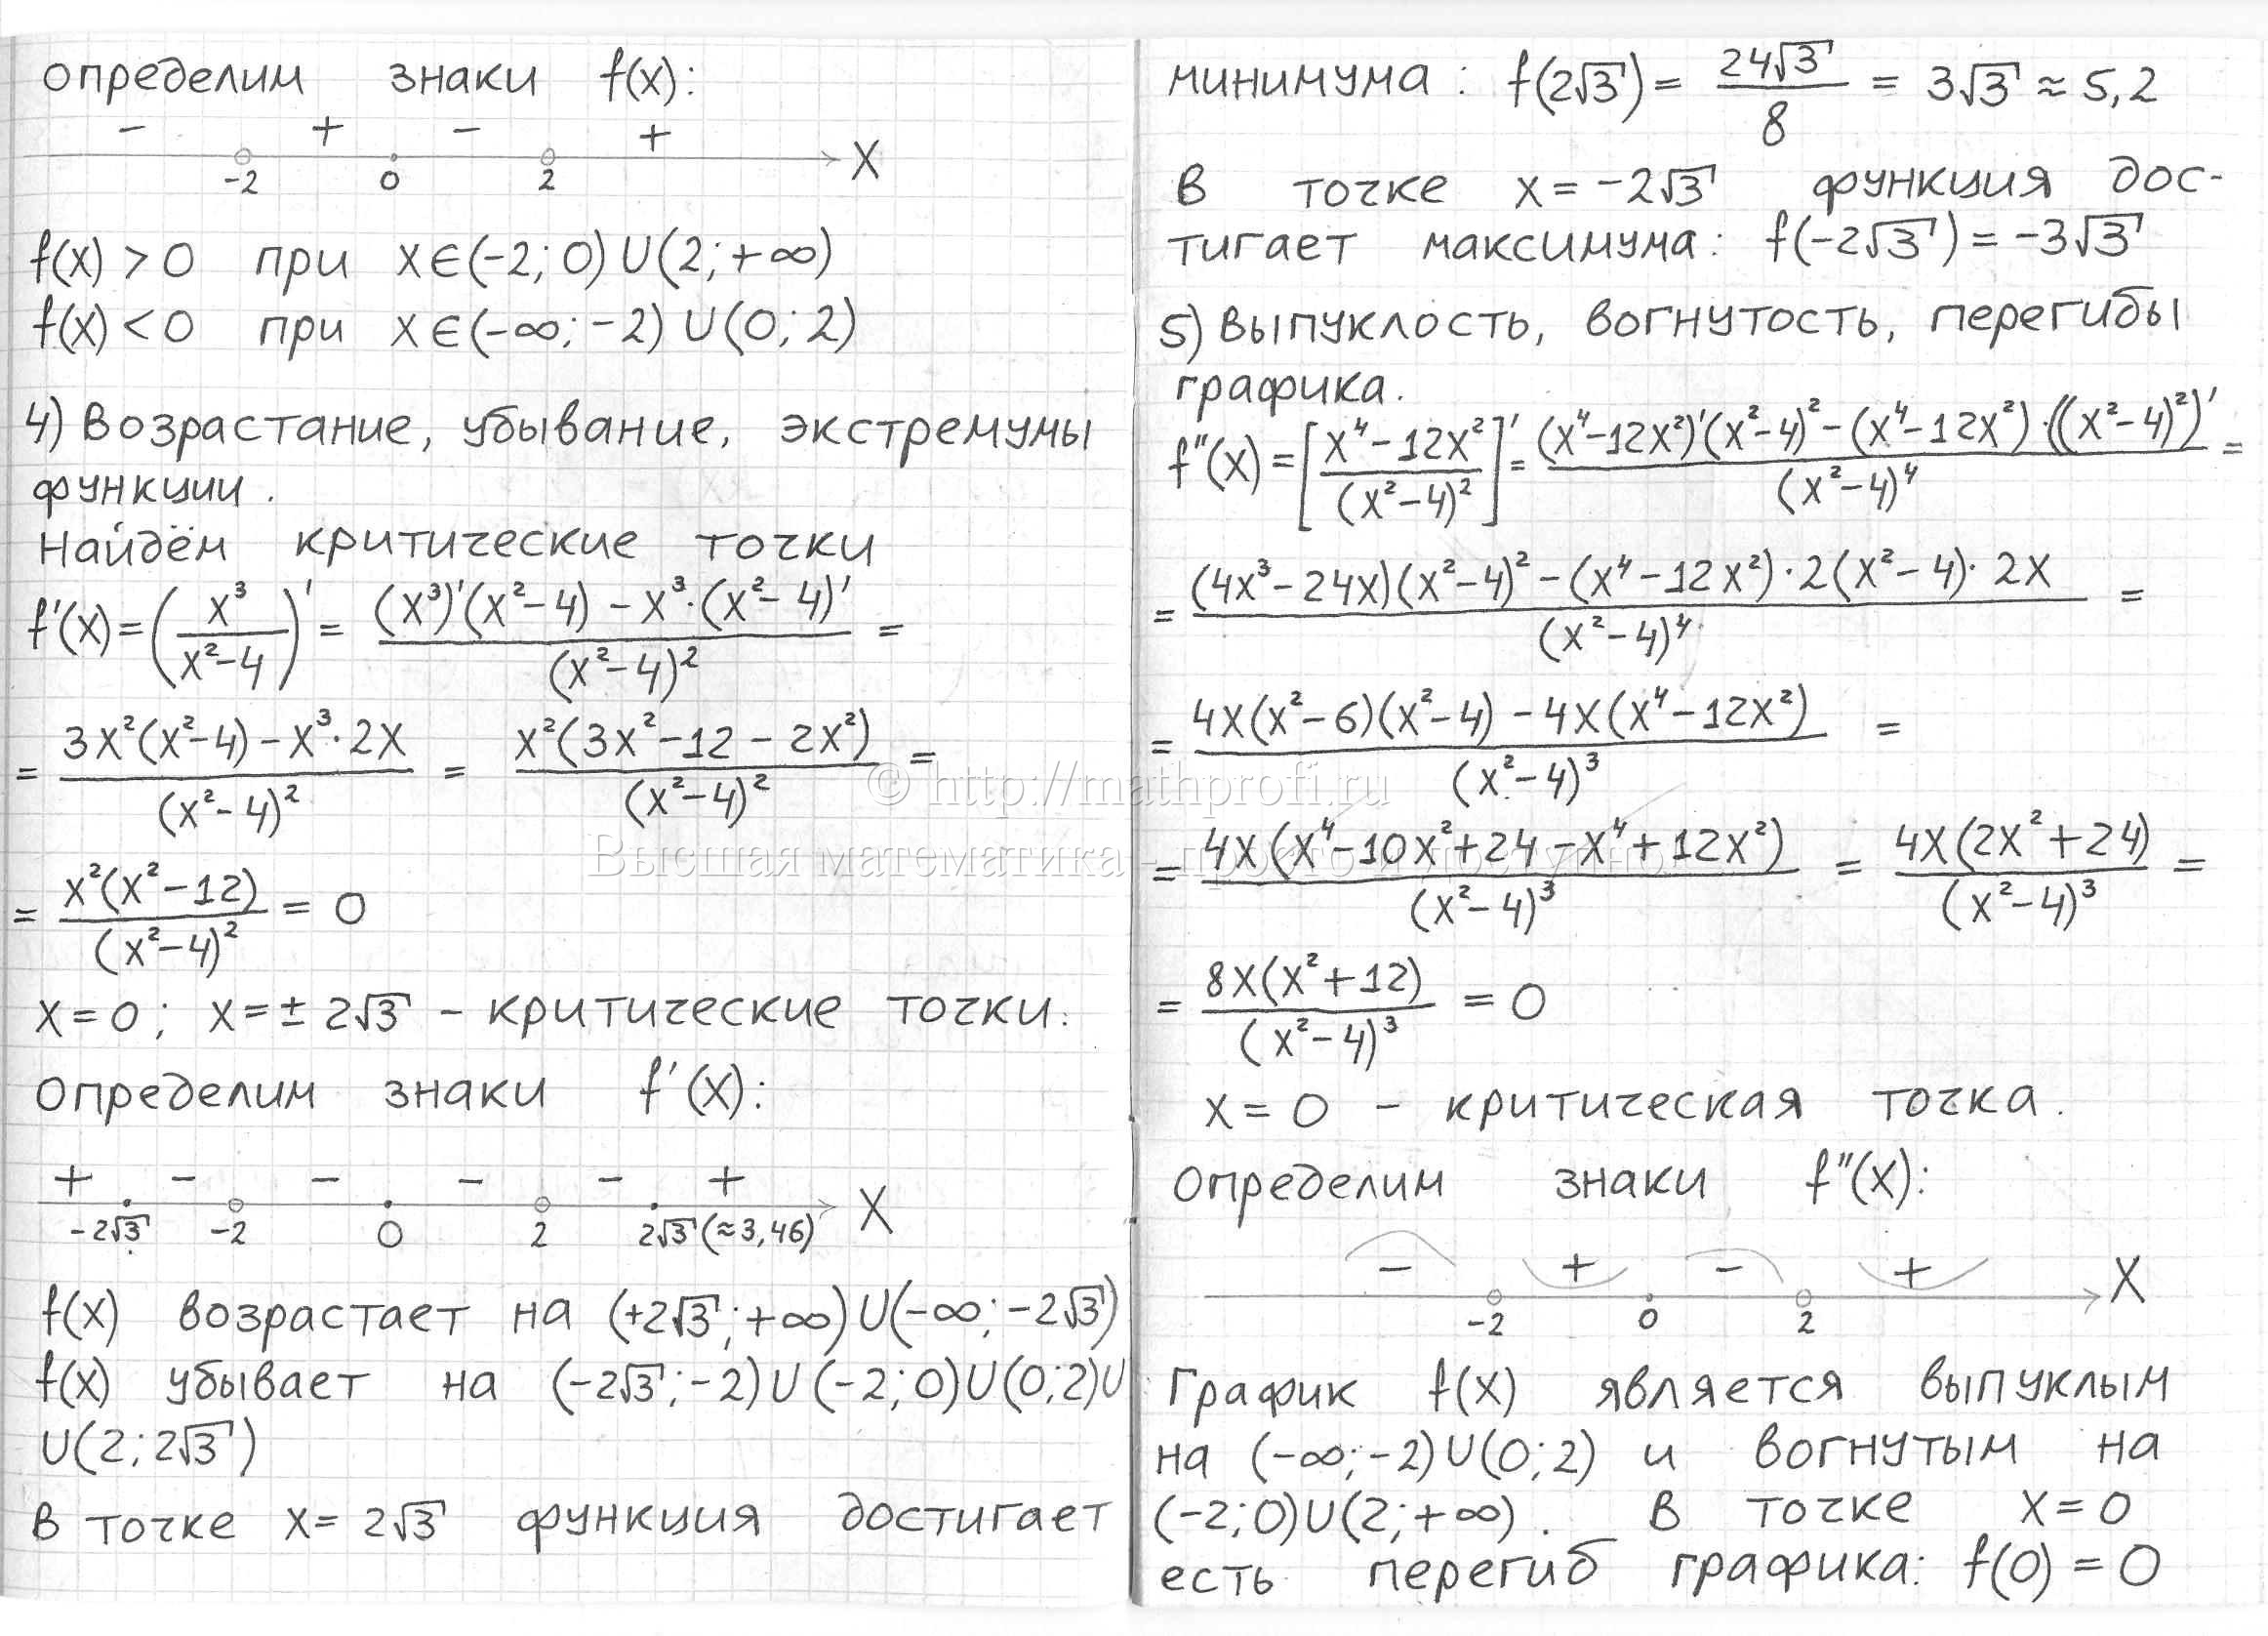 определим знаки f(x):
− + − +
-2 0 2 X
f(x) > 0 при x∈(-2; 0)∪(2; +∞)
f(x) < 0 при x∈(-∞; -2)∪(0; 2)
4) Возрастание, убывание, экстремумы
функции.
Найдём критические точки
f'(x) = (x³/(x²-4))' = ((x³)'(x²-4) - x³·(x²-4)')/(x²-4)² =
= (3x²(x²-4) - x³·2x)/(x²-4)² = x²(3x²-12-2x²)/(x²-4)² =
= x²(x²-12)/(x²-4)² = 0
x=0; x=±2√3 – критические точки.
Определим знаки f'(x):
+ − − − − +
-2√3 -2 0 2 2√3(≈3,46) X
f(x) возрастает на (+2√3; +∞)∪(-∞; -2√3)
f(x) убывает на (-2√3; -2)∪(-2; 0)∪(0; 2)∪
∪(2; 2√3)
В точке x= 2√3 функция достигает
минимума: f(2√3) = 24√3/8 = 3√3 ≈ 5,2
В точке x = -2√3 функция дос-
тигает максимума: f(-2√3) = -3√3
5) Выпуклость, вогнутость, перегибы
графика.
f''(x) = [(x⁴-12x²)/(x²-4)²]' = ((x⁴-12x²)'(x²-4)² - (x⁴-12x²)·((x²-4)²)')/(x²-4)⁴ =
= ((4x³-24x)(x²-4)² - (x⁴-12x²)·2(x²-4)·2x)/(x²-4)⁴ =
= (4x(x²-6)(x²-4) - 4x(x⁴-12x²))/(x²-4)³ =
= 4x(x⁴-10x²+24-x⁴+12x²)/(x²-4)³ = 4x(2x²+24)/(x²-4)³ =
= 8x(x²+12)/(x²-4)³ = 0
x = 0 – критическая точка.
Определим знаки f''(x):
− + − +
-2 0 2 X
График f(x) является выпуклым
на (-∞; -2)∪(0; 2) и вогнутым на
(-2; 0)∪(2; +∞). В точке x=0
есть перегиб графика: f(0) = 0
© http://mathprofi.ru
Высшая математика - просто и доступно